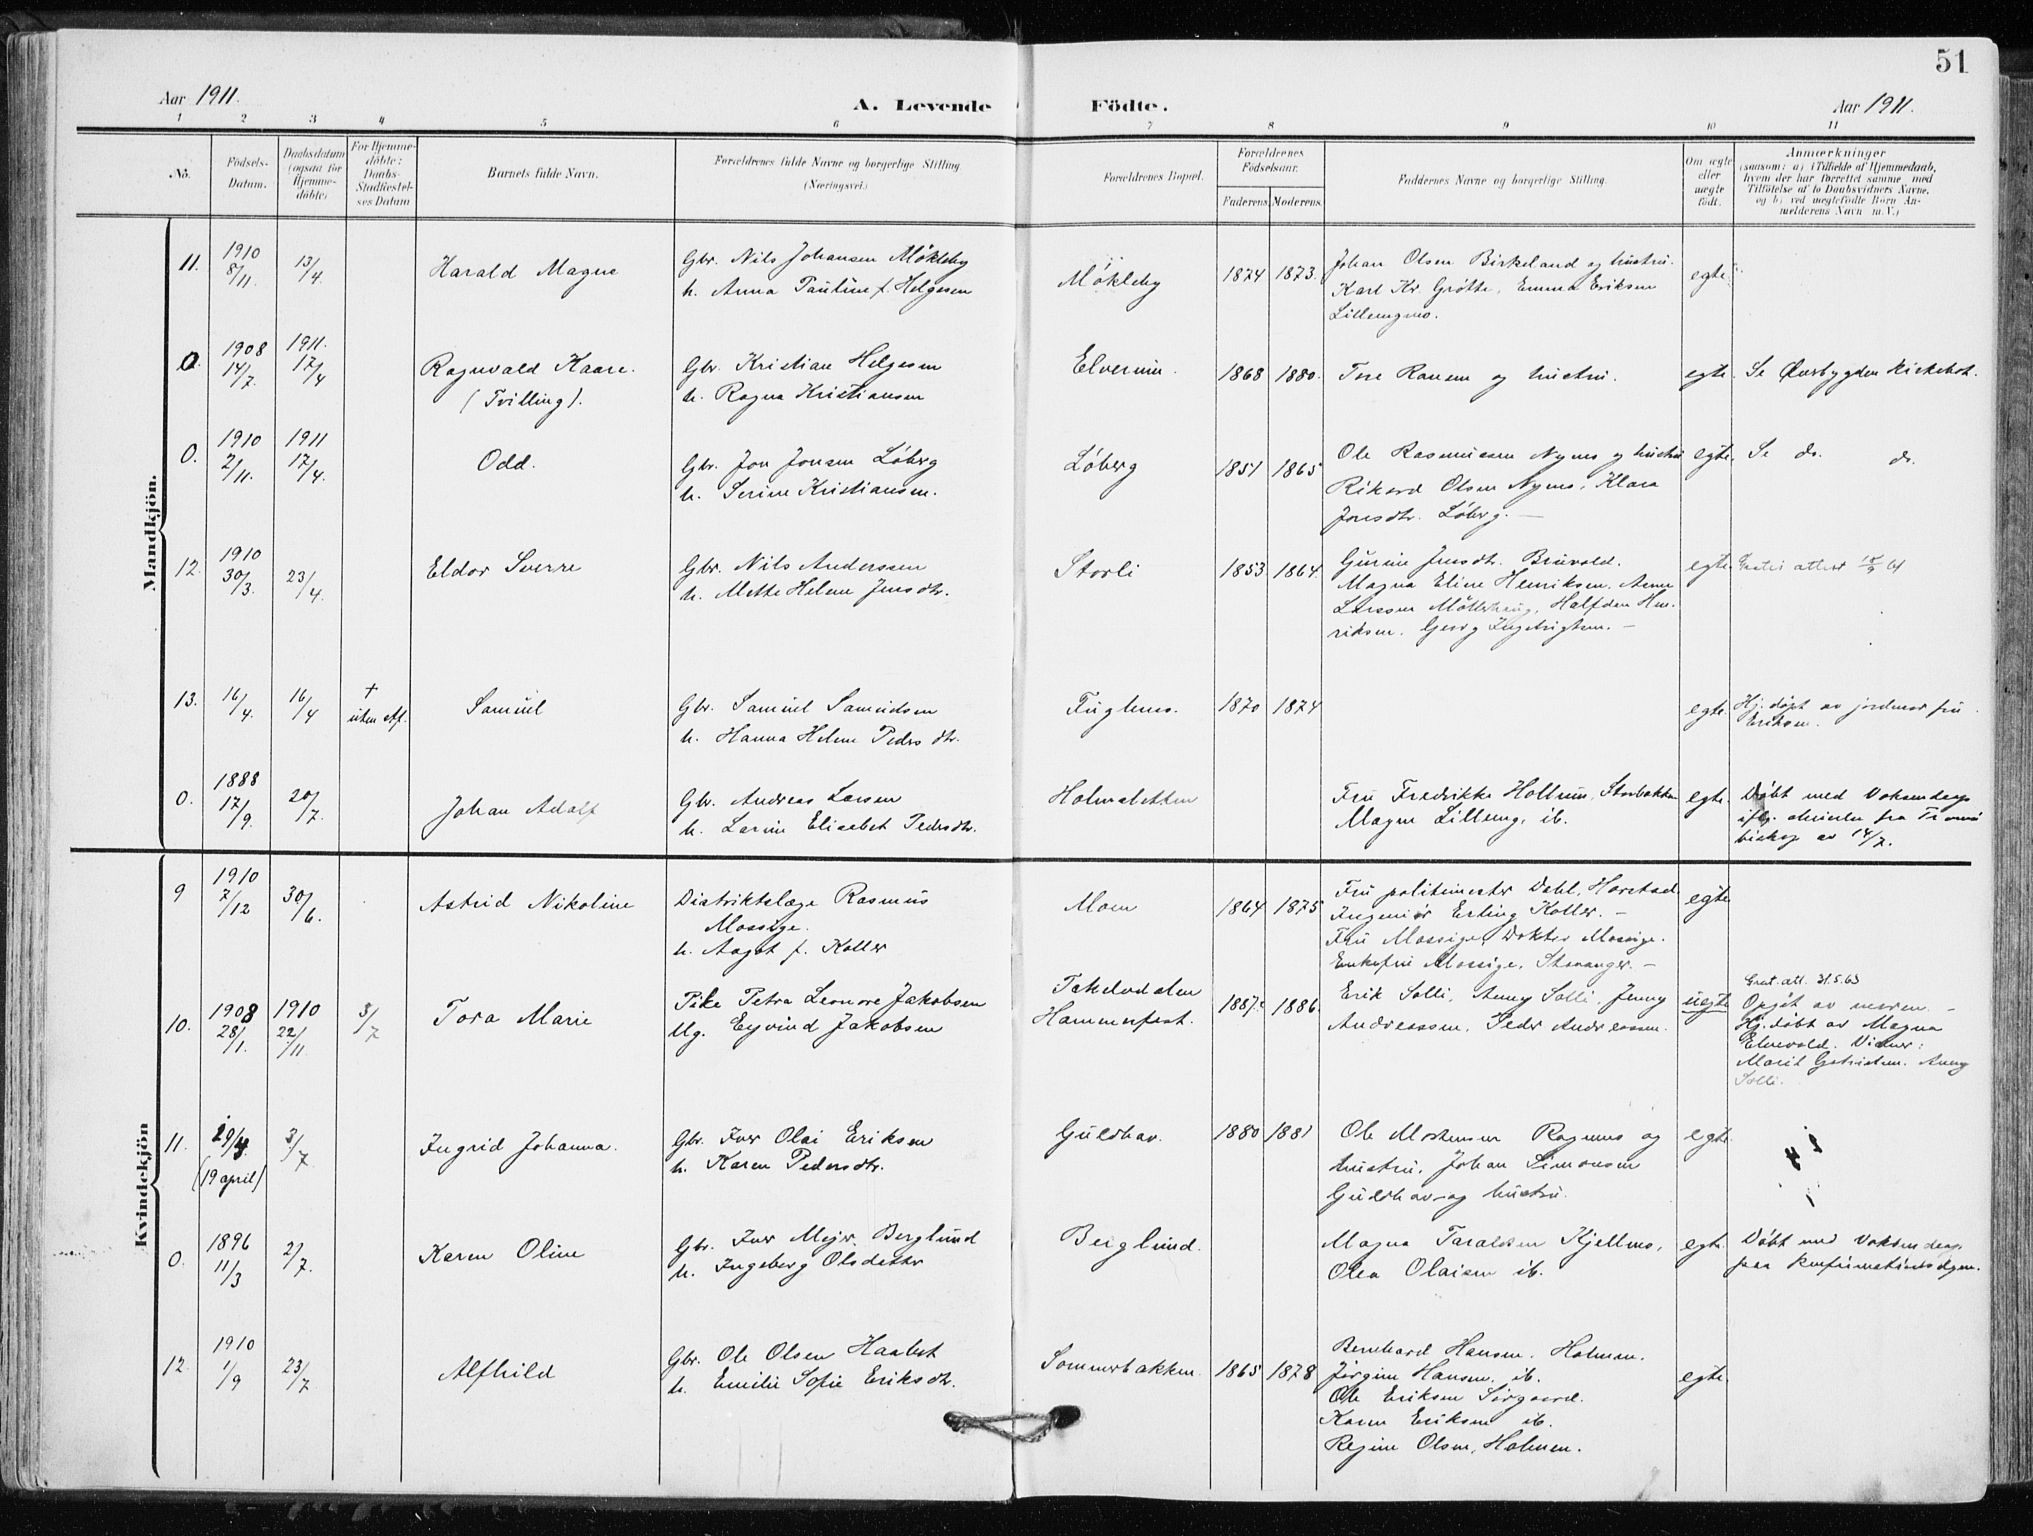 51
Aar 1911.
A. Levende Födte.
Aar 1911.
1 2 3 4 5 6 7 8 9 10 11
No.
Födsels-
Datum.
Daabsdatum
(ogsaa for
Hjemme-
döbte)
For Hjemme-
döbte:
Daabs-
Stadfæstel-
ses Datum
Barnets fulde Navn.
Forældrenes fulde Navne og borgerlige Stilling
(Næringsvei.)
Forældrenes Bopæl.
Forældrenes
Födselsaar.
Faderens Moderens.
Faddernes Navne og borgerlige Stilling.
Om ægte
eller
uægte
født.
Anmærkninger
(saasom: a) i Tilfælde af Hjemmedaab,
hvem der har forrettet samme med
Tilföielse af to Daabsvidners Navne,
og b) ved uægtefödte Börn An-
melderens Navn m.V.)
Mandkjön.
11. 1910 8/11. 13/4 Harald Magne
Gbr. Nils Johansen Møkleby
h. Anna Pauline f. Helgesen
Møkleby 1874 1873.
Johan Olsen Birkeland og hustru.
Karl Kr. Grøtte, Emma Eriksen
egte.
0. 1908 14/7. 1911. 17/4 Ragnvald Kaare.
(Tvilling).
Gbr. Kristian Helgesen
h. Ragna Kristiansen
Elverum. 1868 1880.
Tore Ransen og hustru.
egte. Se Øverbygden kirkebok.
0. 1910 2/11. 1911 17/4. Odd.
Gbr. Jon Jonsen Løberg
h. Serine Kristiansen.
Løberg 1851 1865
Ole Rasmussen Nymo og hustru
Rikard Olsen Nymo, Klara
Jonsdtr. Løberg. —
egte. Se do. do.
12. 1910 30/3. 23/4. Eldor Sverre
Gbr. Nils Anderssen
h. Mette Helene Jensdtr.
Storli 1853 1864.
Gurine Jensdtr. Bruvold.
Magna Eline Henriksen, Anne
Larssen Møllerhaug, Halfdan Hen-
riksen. Georg Ingebrigtsen. —
egte.
13. 16/4. 16/4 † uten Af. Samuel
Gbr. Samuel Samuelsen
h. Hanna Helene Pedersdtr.
Fuglemo. 1870 1874
egte. Hj. døpt av jordmor fru
Eriksen.
0. 1888 17/9. 20/7. Johan Adolf
Gbr. Andreas Larsen
h. Larine Elisabet Pedersdtr.
Holmesletten
Fru Fredrikke Holtrum, Storbakken
Magne Lilleng, ib.
egte. Døbt med Voksendaap
biskop av 14/7.
Kvindekjön
9 1910 7/12 30/6. Astrid Nikoline
Distriktslæge Rasmus
Mossige.
h. Aagot f. Koller
Moen 1864 1875
Fru politimester Dahl, Harstad.
Ingeniør Erling Koller. —
Fru Mossige, Dokter Mossige.
Enkefru Mossige, Stavanger. —
egte
10. 1908 28/1. 1910 22/11 3/7 Tora Marie
Pike Petra Leonore Jakobsen
Ug. Eyvind Jakobsen
Takelvdalen
Hammerfest. 1887. 1886.
Erik Solli, Anny Solli, Jenny
Andreassen, Peder Andreassen.
uegte
Grat. att. 31.5.63
Opgit av moren. —
Hj. døbt av Magna
Elvevold. Vidner:
Marit Gabrielsen. Anny
Solli.
11. 29/4. (19 april) 3/7. Ingrid Johanna.
Gbr. Iver Olai Eriksen
h. Karen Pedersdtr.
Guldhav. 1880 1881
Ole Mortensen Rognmo og
hustru, Johan Simonsen
Guldhav og hustru.
egte.
0. 1896 11/3 2/7. Karen Oline
Gbr. Iver Mejer Berglund
h. Ingeberg Olsdatter
Berglund.
Magna Taraldsen Kjellmo,
Olea Olaisen ib.
egte. Døbt med Voksendaap
paa konfirmationsdagen.
12. 1910 1/9 23/7. Alfhild
Gbr. Ole Olsen Haabet
h. Emilie Sofie Eriksdtr.
Sommerbakken 1865 1878
Bernhard Hansen. Holmen.
Jørgine Hansen. ib.
Ole Eriksen Sørgaard.
Karen Eriksen ib.
Regine Olsen, Holmen.
egte.